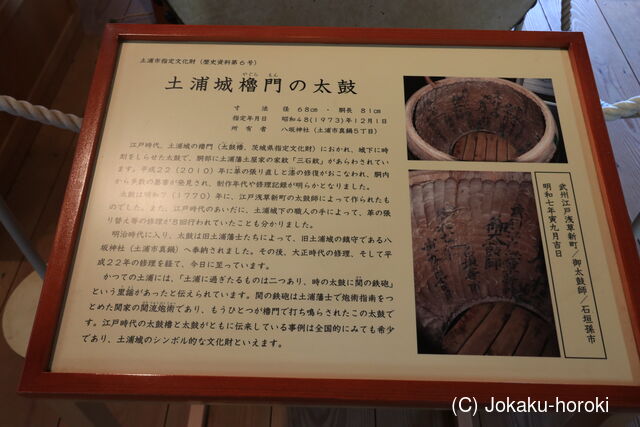 土浦市指定文化財（歴史資料第6号）
土浦城櫓門の太鼓
やぐら もん
寸　法　径 68cm ・ 胴長 81cm
指定年月日　昭和48(1973)年12月1日
所有者　八坂神社（土浦市真鍋5丁目）
江戸時代、土浦城の櫓門（太鼓櫓、茨城県指定文化財）におかれ、城下に時
刻をしらせた太鼓で、胴部に土浦藩土屋家の家紋「三石紋」があらわされてい
ます。平成22（2010）年に革の張り直しと漆の修復がおこなわれ、胴内
から多数の墨書が発見され、制作年代や修理記録が明らかとなりました。
太鼓は明和7（1770）年に、江戸浅草新町の太鼓師によって作られたも
のでした。また、江戸時代のあいだに、土浦城下の職人の手によって、革の張
り替え等の修理が8回行われていたことも分かりました。
明治時代に入り、太鼓は旧土浦藩士たちによって、旧土浦城の鎮守である八
坂神社（土浦市真鍋）へ奉納されました。その後、大正時代の修理、そして平
成22年の修理を経て、今日に至っています。
かつての土浦には、「土浦に過ぎたるものは二つあり、時の太鼓に関の鉄砲」
という里謡があったと伝えられています。関の鉄砲は土浦藩士で炮術指南をつ
とめた関家の関流炮術であり、もうひとつが櫓門で打ち鳴らされたこの太鼓で
す。江戸時代の太鼓櫓と太鼓がともに伝来している事例は全国的にみても希少
であり、土浦城のシンボル的な文化財といえます。
武州江戸浅草新町／御太鼓師／石垣孫市
明和七年寅九月吉日
(C) Jokaku-horoki